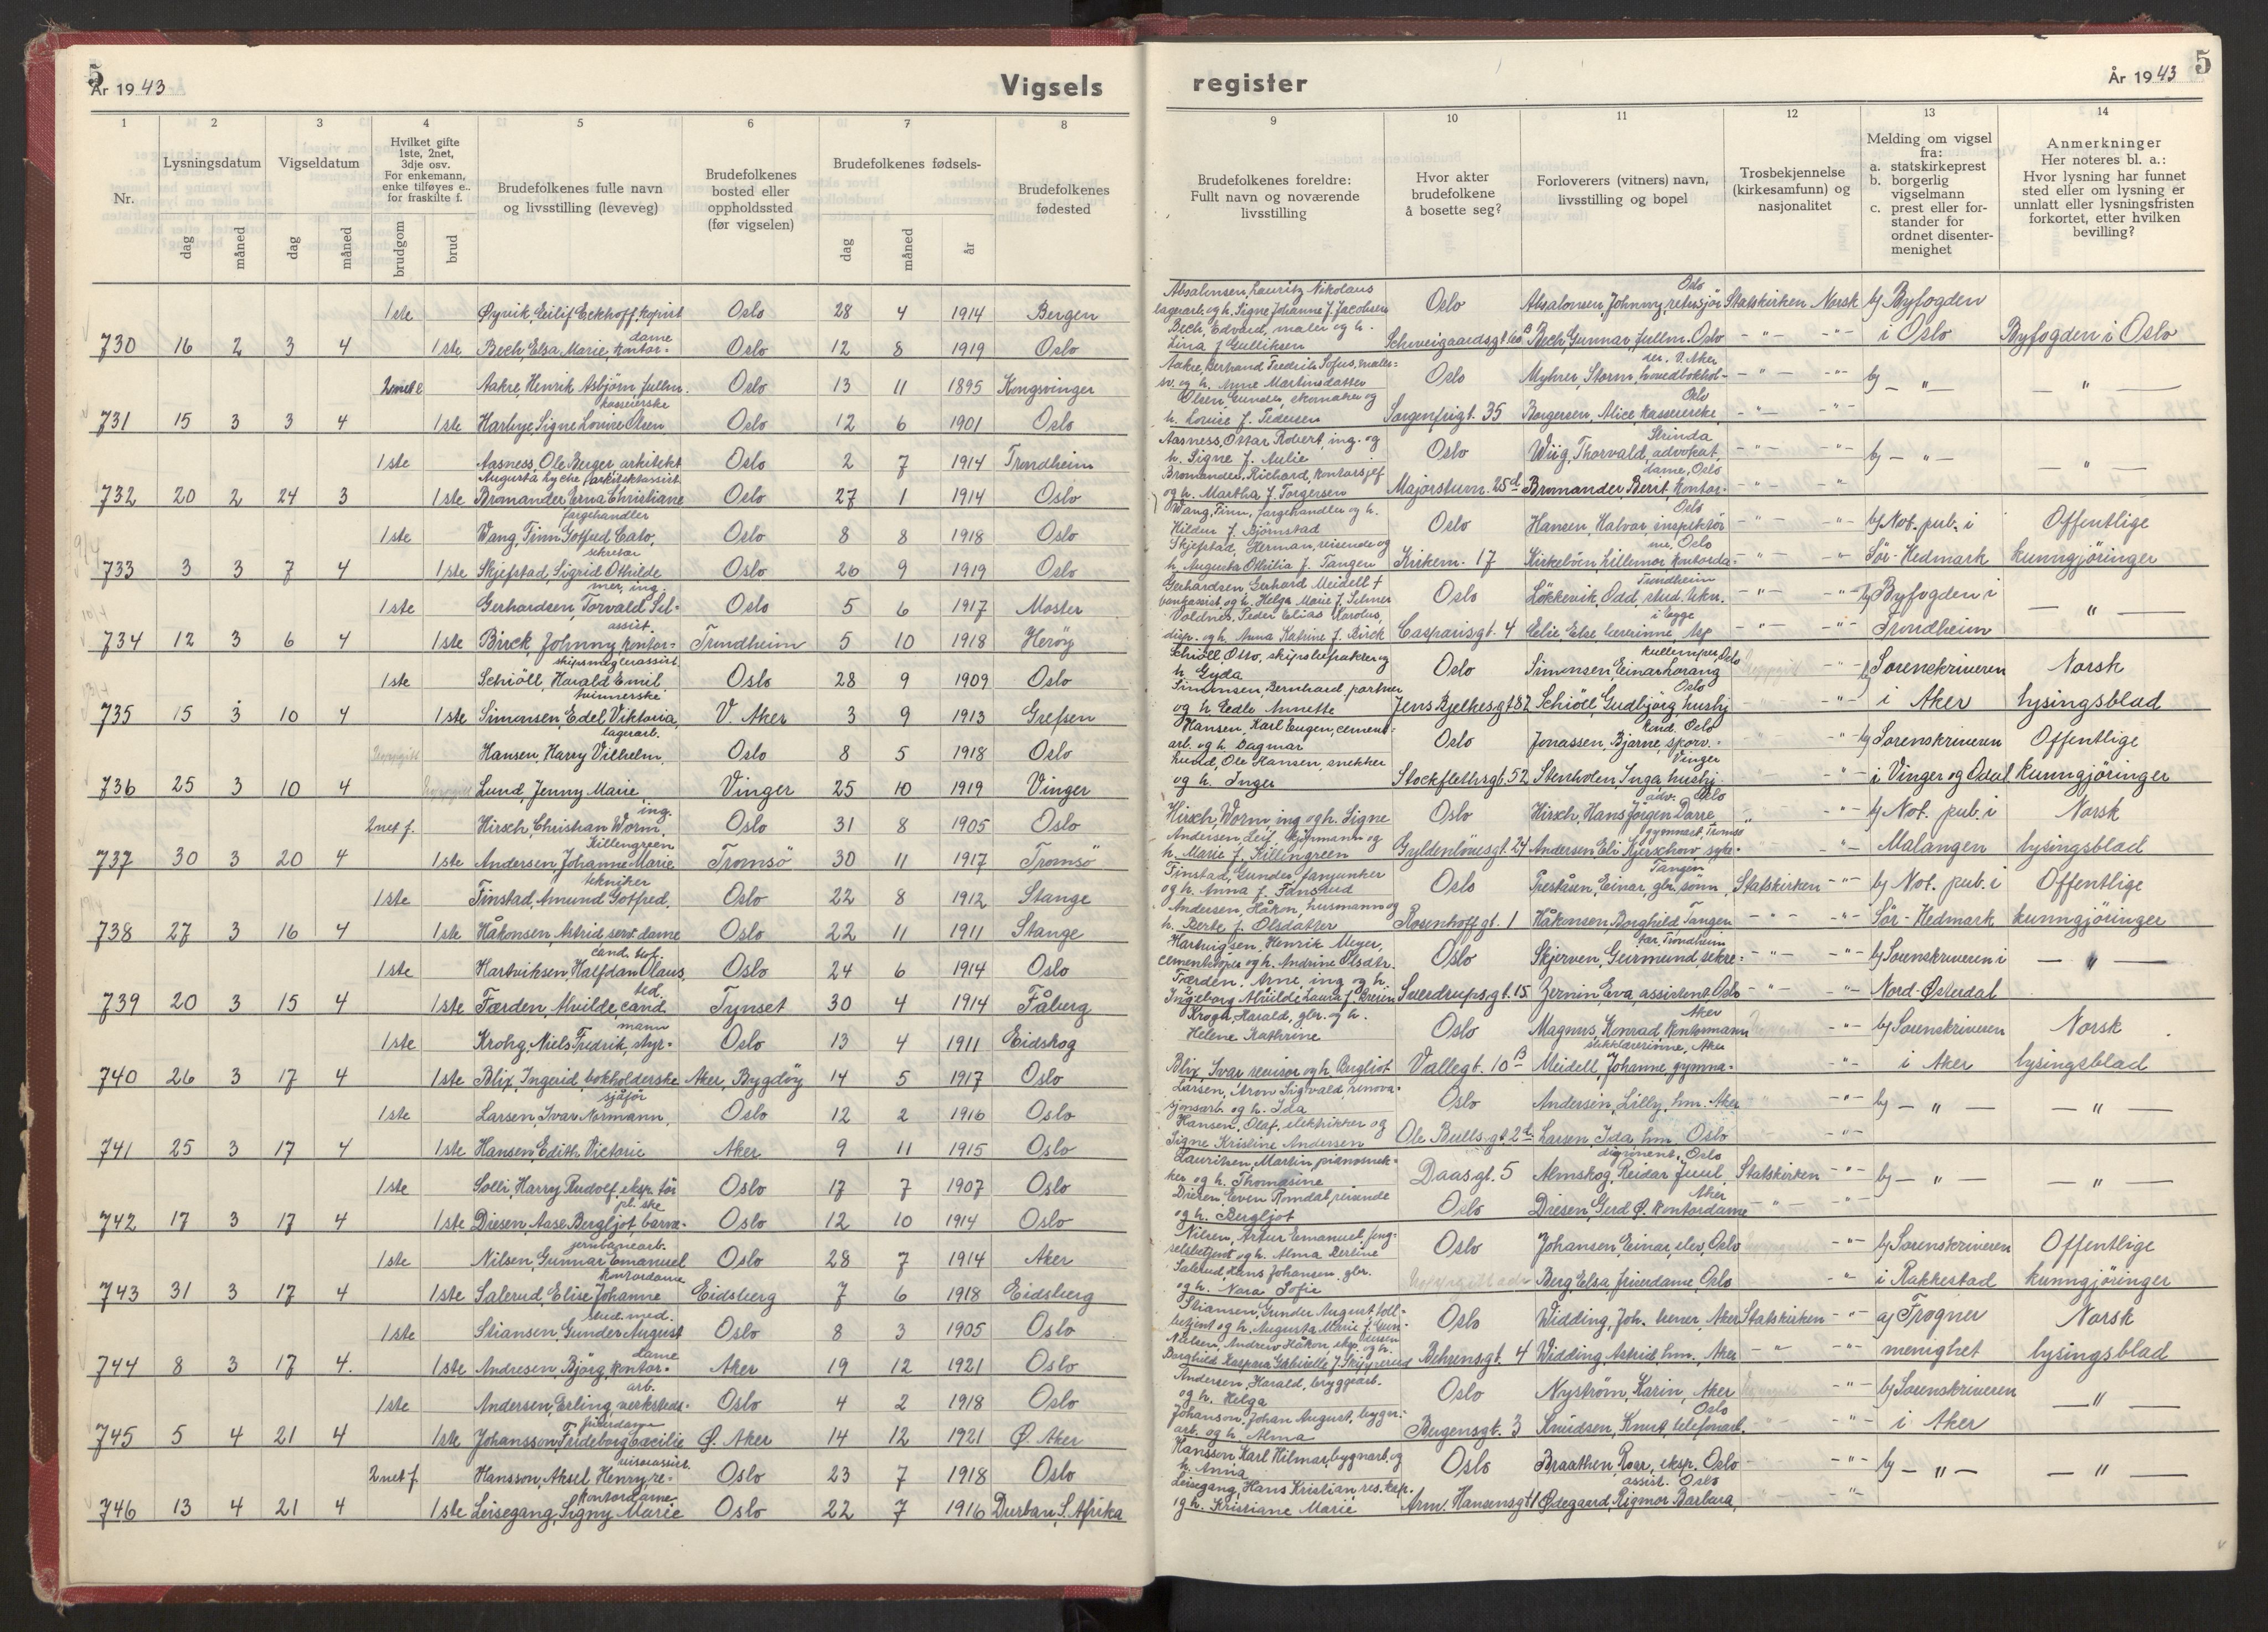 5
År 1943
Vigsels
register
År 1943
5
1 2 3 4 5 6 7 8
9 10 11 12 13 14
Nr.
Lysningsdatum
Vigseldatum
Hvilket gifte
1ste, 2net,
3dje osv.
For enkemann,
enke tilføyes e..
for fraskilte f.
Brudefolkenes fulle navn
og livsstilling (leveveg)
Brudefolkenes
bosted eller
oppholdssted
(før vigselen)
Brudefolkenes fødsels-
Brudefolkenes
fødested
dag måned dag måned brudgom brud dag måned år
Brudefolkenes foreldre:
Fullt navn og noværende
livsstilling
Hvor akter
brudefolkene
å bosette seg?
Forloverers (vitners) navn,
livsstilling og bopel
Trosbekjennelse
(kirkesamfunn) og
nasjonalitet
Melding om vigsel
fra:
a. statskirkeprest
b. borgerlig
vigselmann
c. prest eller for-
stander for
ordnet disenter-
menighet
Anmerkninger
Her noteres bl. a.:
Hvor lysning har funnet
sted eller om lysning er
unnlatt eller lysningsfristen
forkortet, etter hvilken
bevilling?
1ste Øyvik, Eilif Eckhoff, kopist Oslo 28 4 1914 Bergen
730 16 2 3 4 1ste Bech, Elsa Marie, kontor- dame Oslo 12 8 1919 Oslo
Aakre, Henrik Asbjørn, fullm. Oslo 13 11 1895 Kongsvinger
731 15 3 3 4 1ste Harbye, Signe Louise Olsen kasseierske Oslo 12 6 1901 Oslo
1ste Aasness, Ole Berger, arkitekt Oslo 2 7 1914 Trondheim
732 20 2 24 3 1ste Bromander, Erna Christiane Augusta Lyche, arkitektassist. Oslo 27 1 1914 Oslo
1ste Wang, Finn Gotfred Cato, fargehandler Oslo 8 8 1918 Oslo
733 3 3 7 4 1ste Skjefstad, Sigrid Othilde sekretær Oslo 26 9 1919 Oslo
1ste Gerhardsen, Torvald Sel- mer, ing. Oslo 5 6 1917 Moster
734 12 3 6 4 1ste Birck, Johnny, kontor- assist. Trondheim 5 10 1918 Herøy
1ste Schiöll, Harald Emil skipsmeglerassist. Oslo 28 9 1909 Oslo
735 15 3 10 4 1ste Simonsen, Edel Viktoria, tvinnerske V. Aker 3 9 1913 Grefsen
Hansen, Harry Vilhelm, lagerarb. Oslo 8 5 1918 Oslo
736 25 3 10 4 Lund, Jenny Marie Vinger 25 10 1919 Vinger
2net f. Hirsch, Christian Worm, ing. Oslo 31 8 1905 Oslo
737 30 3 20 4 1ste Andersen, Johanne Marie Killengreen Tromsö 30 11 1917 Tromsö
1ste Finstad, Amund Gotfred, tekniker Oslo 22 8 1912 Stange
738 27 3 16 4 1ste Håkonsen, Astrid, serv. dame Oslo 22 11 1911 Stange
1ste Hartviksen, Halfdan Olaus, Oslo 24 6 1914 Oslo
739 20 3 15 4 1ste Færden, Alvilde, cand. Tynset 30 4 1914 Fåberg
1ste Krohg, Niels Fredrik, styr- mann Oslo 13 4 1911 Eidskog
740 26 3 17 4 1ste Blix, Ingerid, bokholderske Aker, Bygdöy 14 5 1917 Oslo
1ste Larsen, Ivar Normann, sjåför Oslo 12 2 1916 Oslo
741 25 3 17 4 1ste Hansen, Edith Victorie Aker 9 11 1915 Oslo
1ste Solli, Harry Rudolf, eksp. Oslo 17 7 1907 Oslo
742 17 3 17 4 1ste Diesen, Aase Bergljot, barne- Oslo 12 10 1914 Oslo
1ste Nilsen, Gunnar Emanuel jernbanearb. Oslo 28 7 1914 Aker
743 31 3 17 4 1ste Salerud, Elise Johanne kontordame Eidsberg 7 6 1918 Eidsberg
1ste Stiansen, Gunder August stud. med. Oslo 8 3 1905 Oslo
744 8 3 17 4. 1ste Andresen, Björg, kontor- dame Aker 19 12 1921 Oslo
1ste Andersen, Erling, verksteds- arb. Oslo 4 2 1918 Oslo
745 5 4 21 4 1ste Johansson, Frideborg Cæcilie friserdame Ø. Aker 14 12 1921 Ø. Aker
2net f. Hansson, Aksel Henry, re- Oslo 23 7 1918 Oslo
746 13 4 21 4 1ste Leisegang, Signy Marie kontordame Oslo 22 7 1916 Durban, S. Afrika
Absalonsen, Lauritz Nikolaus
lagerarb. og h. Signe Johanne f. Jacobsen Oslo Absalonsen, Johnny, retusjör Oslo Statskirken Norsk b) Byfogden
Bech, Edvard, maler og h.
Lina f. Gulliksen Schweigaardsgt. Bech, Gunnar, fullm. Oslo i Oslo Byfogden i Oslo
Aakre, Bertrand Fredrik Sofus, maler-
og h. Anne Martinsdatter Oslo Myhrer, Storm, hovedbokhol- der, V. Aker b) — " — — " —
Olsen, Gunder, skomaker og
h. Louise f. Pedersen Sorgenfrigt. 35 Borgersen, Alice, kasseierske Oslo
Aasness, Ottar Robert, ing. og
h. Signe f. Aulie Oslo Wiig, Thorvald, advokat, Strinda b) — " — — " —
Bromander, Richard, kontorsjef
og h. Martha f. Torgersen Majorstuvn. 25d Bromander, Berit, kontor- dame, Oslo
Wang, Finn, fargehandler og h.
Hildur f. Björnstad Oslo Hansen, Halvor, inspektör Oslo b) Not. pub. i Offentlige
Skjefstad, Herman, reisende og
h. Augusta Othilia f. Tangen Kirkevn. 17 Kirkebøen, Lillemor, kontorda- me, Oslo Sör-Hedmark kunngjöringer
Gerhardsen, Gerhard Meidell †
bankassist. og h. Helga Marie f. Selmer Oslo Løkkevik, Odd, stud. tekn. Trondheim b) Byfogden i — " —
Voldnes, Peder Elias Karolus,
disp. og h. Anna Katrine f. Birck Casparisgt. 4 Eelie, Else, lærerinne, Trondheim
Schiöll, Otto, skipsbefrakter og
h. Gyda Oslo Simonsen, Einar Lorang Oslo b) Sorenskriveren Norsk
Simonsen, Bernhard, portner
og h. Edle Annette Jens Bjelkesgt. 82 Schiöll, Gudbjörg, hushj. Oslo i Aker lysingsblad
Hansen, Karl Eugen, cement-
arb. og h. Dagmar Oslo Jonassen, Bjarne, sporv.- kond. Oslo b) Sorenskriveren Offentlige
Lund, Ole Hansen, snekker
og h. Inger Stockflethsgt. 52 Stenholen, Inga, hushj. Vinger i Vinger og Odal kunngjöringer
Hirsch, Worm, ing. og h. Signe Oslo Hirsch, Hans Jörgen Darre adv. Oslo b) Not. pub. i Norsk
Andersen, Leif, og
h. Marie f. Killingreen Gyldenlövesgt. 24 Andersen, Eli Kjerschow, syke- gymnast, Tromsö Malangen lysingsblad
Finstad, Gunder, fanjunker
og h. Anna f. Fansrud Oslo Preståsen, Einar, gbr. sönn, Tangen Statskirken b) Not. pub. i Offentlige
Andersen, Håkon, husmann og
h. Berte f. Olsdatter Rosenhoffgt. 1 Håkonsen, Borghild, Tangen Sör-Hedmark kunngjöringer
Hartvigsen, Henrik Meyer,
cementstöper og h. Andrine Olsdtr. Oslo Skjerven, Geirmund, sekre- tær, Trondheim b) Sorenskriveren i — " —
Færden, Arne, ing. og h.
Ingeborg Alvilde Laura f. Sverdrupsgt. 15 Zernin, Eva, assistent, Oslo Nord-Østerdal
Krogh, Harald, gbr. og h.
Helene Kathrine Oslo Magnus, Konrad, kontormann Aker b) Sorenskriveren Norsk
Blix, Ivar, revisor og h. Bergliot Vallegt. 10B Meidell, Johanne, gymna- stikklærerinne, Aker i Aker lysingsblad
Larsen, Aron Sigvald, renova-
sjonsarb. og h. Ida Oslo Andersen, Lilly, hm. Aker b) — " — — " —
Hansen, Olaf, elektriker og
Signe Kristine Andersen Ole Bullsgt. Larsen, Ida, hm. Oslo
Lauritzen, Martin, pianosnek-
ker og h. Thomasine Daasgt. 5 Almskog, Reidar Juul, Oslo Statskirken b) — " — — " —
Diesen, Even Romdal, reisende
og h. Bergljot Oslo Diesen, Gerd Ø. kontordame Aker
Nilsen, Artur Emanuel, feng-
selsbetjent og h. Alma Oslo Johansen, Einar, elev, Oslo b) Sorenskriveren Offentlige
Salerud, Hans Johansen, gbr.
og h. Nora Sofie Berg, Elsa, friserdame, Oslo i Rakkestad kunngjöringer
Stiansen, Gunder August, toll-
betjent og h. Augusta Marie f. Oslo Widding, Joh. Aker Statskirken a) Frogner Norsk
Nielsen, Andrew Håkon, eksp. og h.
Borghild Kaspara Gabrielle f. Behrensgt. 4 Widding, Astrid, hm., Aker menighet lysingsblad
Andersen, Harald, bryggearb.
og h. Helga Oslo Nyström, Karin, Aker b) Sorenskriveren — " —
Johanson, Johan August, bygn.-
arb. og h. Alma Bergensgt. 3 Knudsen, Knut, telefonarb. Oslo i Aker
Hansson, Karl Hilmar, bygnarb. og
h. Anna Oslo Braathen, Roar, eksp. Oslo b) — " — — " —
Leisegang, Hans Kristian, res. kap.
og h. Kristiane Marie Arm. Hansensgt. 1 Ødegaard, Rigmor Barbara, assist. Oslo